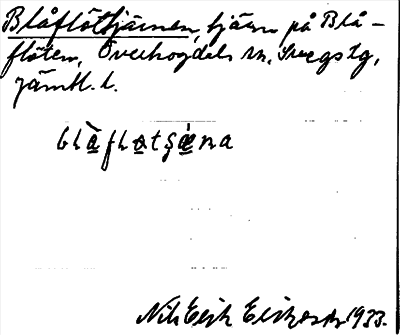 Blåflöttjärnen, tjärn på Blå-
flöten, Överhogdals sn, Svegs tg,
Jämtl. l.
blåfløtʂæ̀na
Nils Erik 1933.